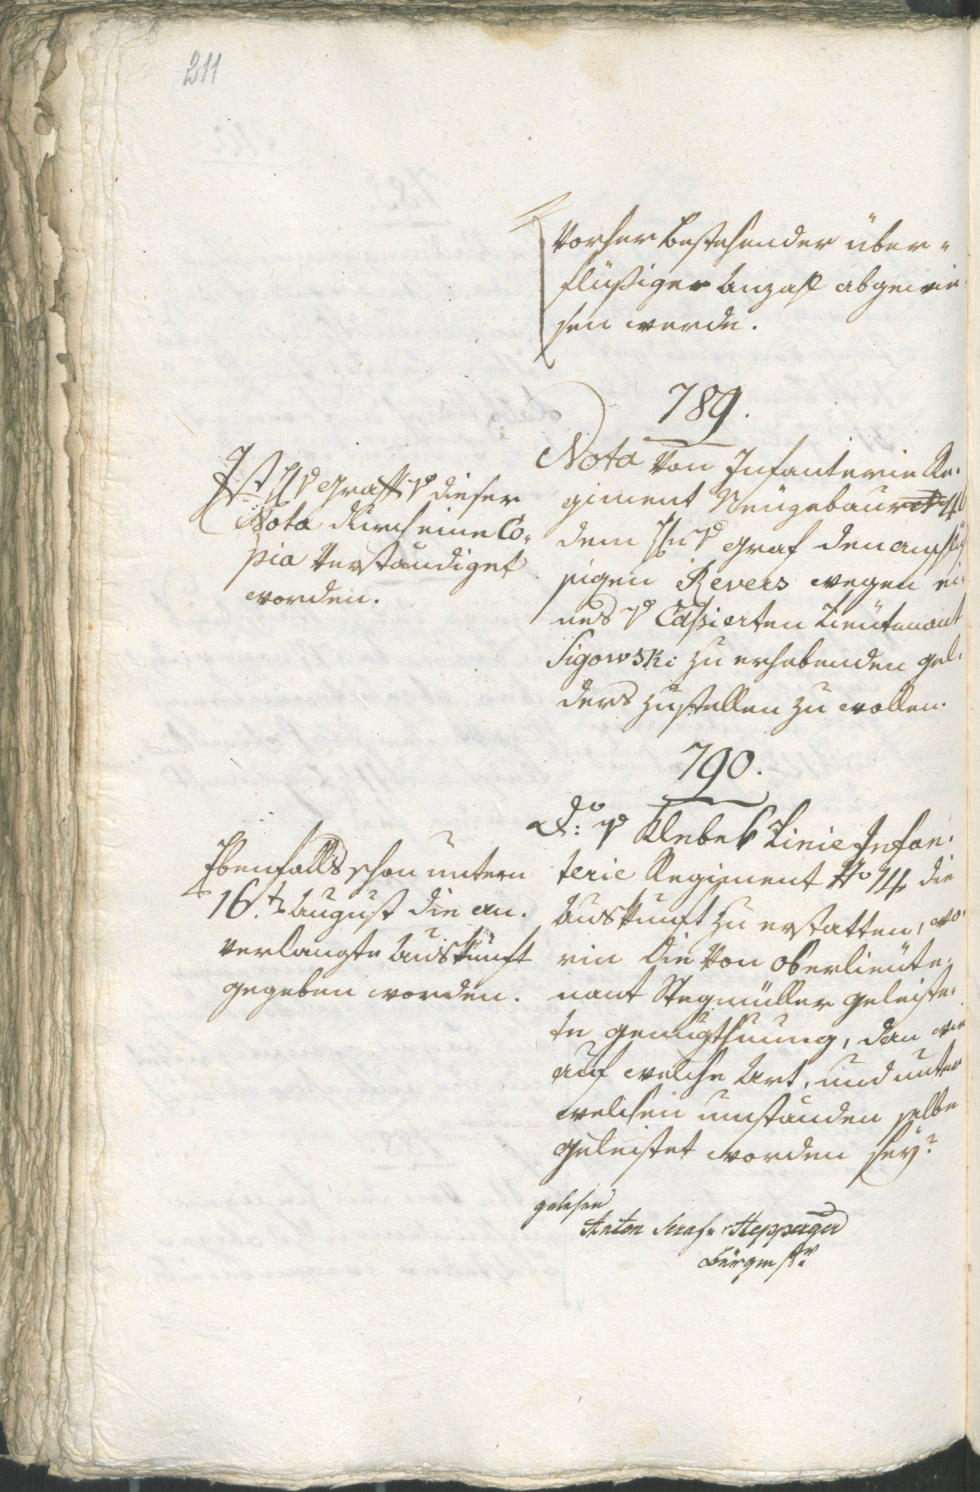 211
vorher bestehender über-
flüßiger Anzahl abgewie-
sen werde.
789.
Nota von Infanterie Re-
giment Neugebaur
dem Hn v Graf den
sigen Revers wegen ei-
nes v Caßierten Lieutenant
Sigowski zu erhebenden Gel-
ders zustellen zu wollen.
Ist H v Graff v dieser
Nota durch eine Co-
pia verständiget
worden.
790.
do: v Klebek Linie Infan-
terie Regiment No 14 die
Auskunft zu erstatten, wo-
rin die von Oberlieute-
nant Stegmüller geleiste-
te genugthuung, dan wie
auf welche Art, und unter
welchen umständen selbe
geleistet worden sey?
Ebenfalls schon untern
16t August die an-
verlangte Auskunft
gegeben worden.
gelesen
Anton Stepperger
Bürgmstr